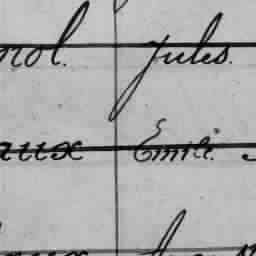 nol. Jules.
aux Emile